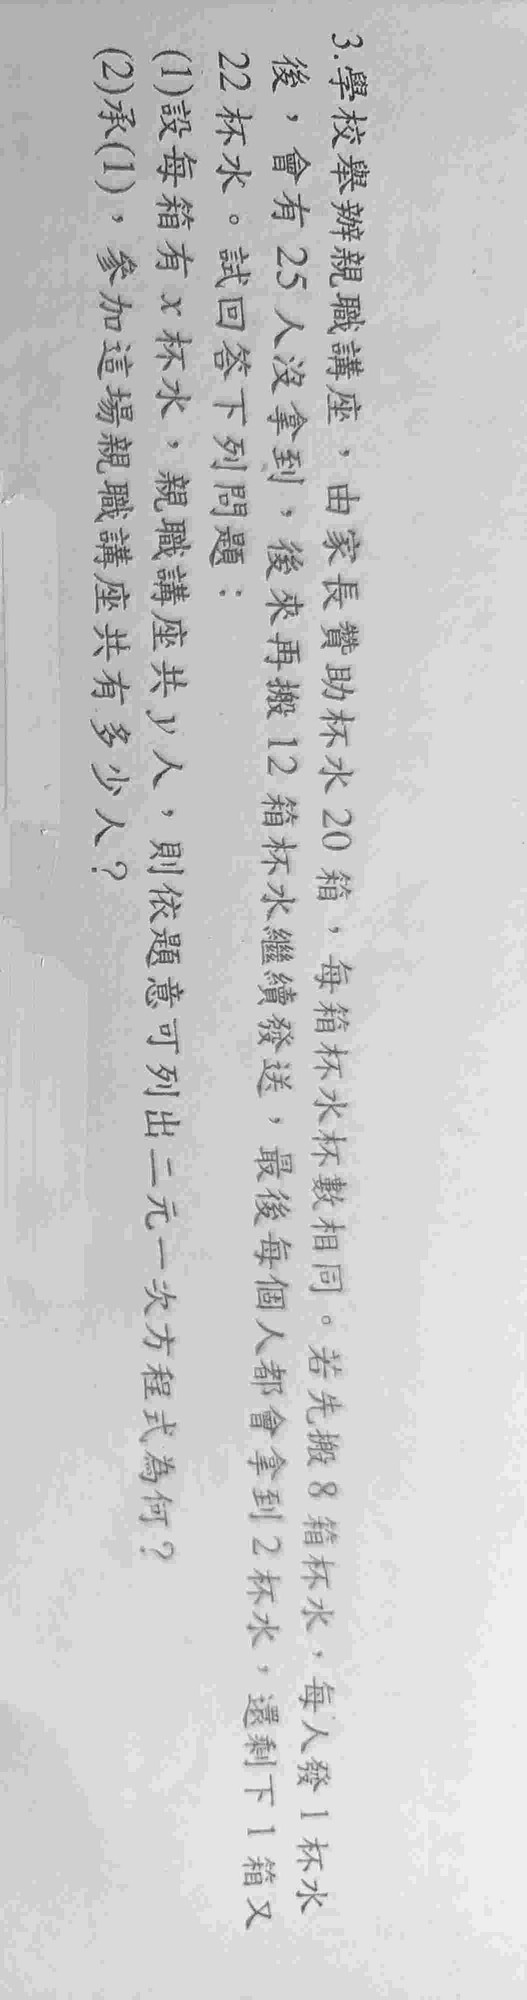 3.學校舉辦親職講座，由家長贊助杯水 20 箱，每箱杯水杯數相同。若先搬 8 箱杯水，每人發 1 杯水
後，會有 25 人沒拿到，後來再搬 12 箱杯水繼續發送，最後每個人都會拿到 2 杯水，還剩下 1 箱又
22 杯水。試回答下列問題：
(1)設每箱有 x 杯水，親職講座共 y 人，則依題意可列出二元一次方程式為何？
(2)承(1)，參加這場親職講座共有多少人？